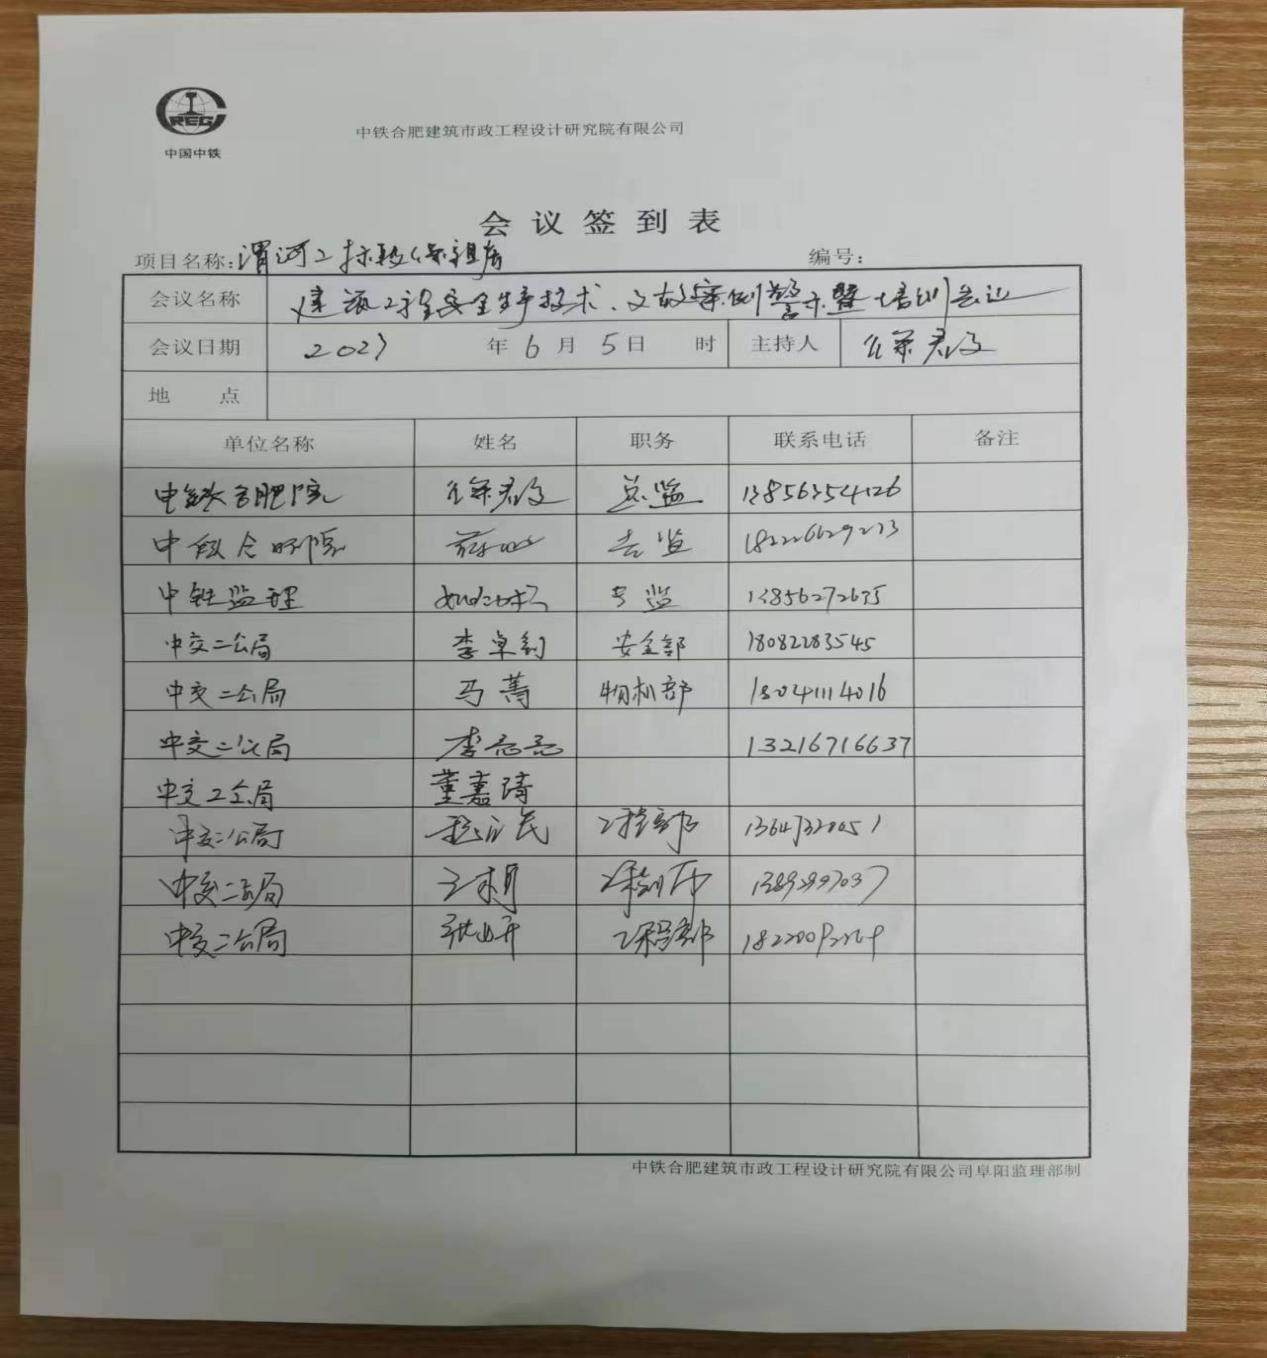 CREC
中国中铁
中铁合肥建筑市政工程设计研究院有限公司
会议签到表
项目名称:渭河二标段保租房 编号:
会议名称 建筑工程安全生产技术、事故案例警示暨培训会议
会议日期 2023 年 6 月 5 日 时 主持人
地 点
单位名称 姓名 职务 联系电话 备注
中铁合肥院 总监 13856354126
中铁合肥院 18226629273
中铁监理 专监 13856272635
中交二公局 李卓钊 安全部 18082283545
中交二公局 马菁 物机部 18041114016
中交二公局 李亮亮 13216716637
中交二公局 董嘉琦
中交二公局 工程部
中交二公局 王栩
中交二公局 张妍 工程部
中铁合肥建筑市政工程设计研究院有限公司阜阳监理部制